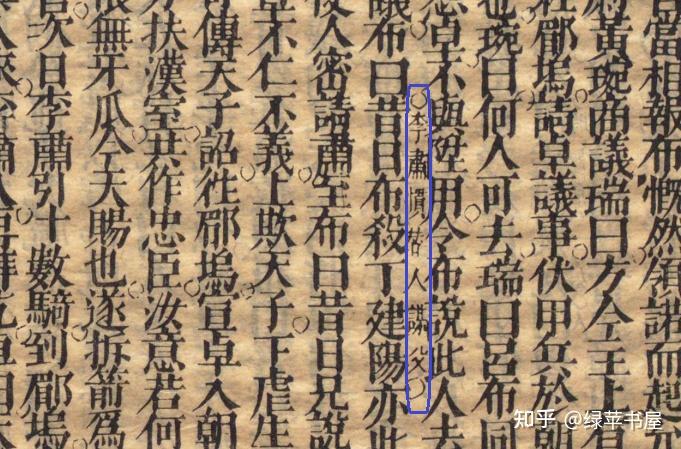 當相報布慨然領諾而起允
黃琬商議瑞曰方今主上有
往郿塢請卓議事伏甲兵於朝
也琬曰何人可去瑞曰呂布同
怨卓不與陞用令布說此人去
李肅慣人謀父
議布曰昔日布殺丁建陽亦此
使人密請肅至布曰昔日兄說
卓不仁不義上欺天子下虐生
可傳天子詔往郿塢宣卓入朝
力扶漢室共作忠臣汝意若何
恨無牙瓜今天賜也遂折箭為
官次日李肅引十數騎到郿塢
知乎 @绿苹书屋